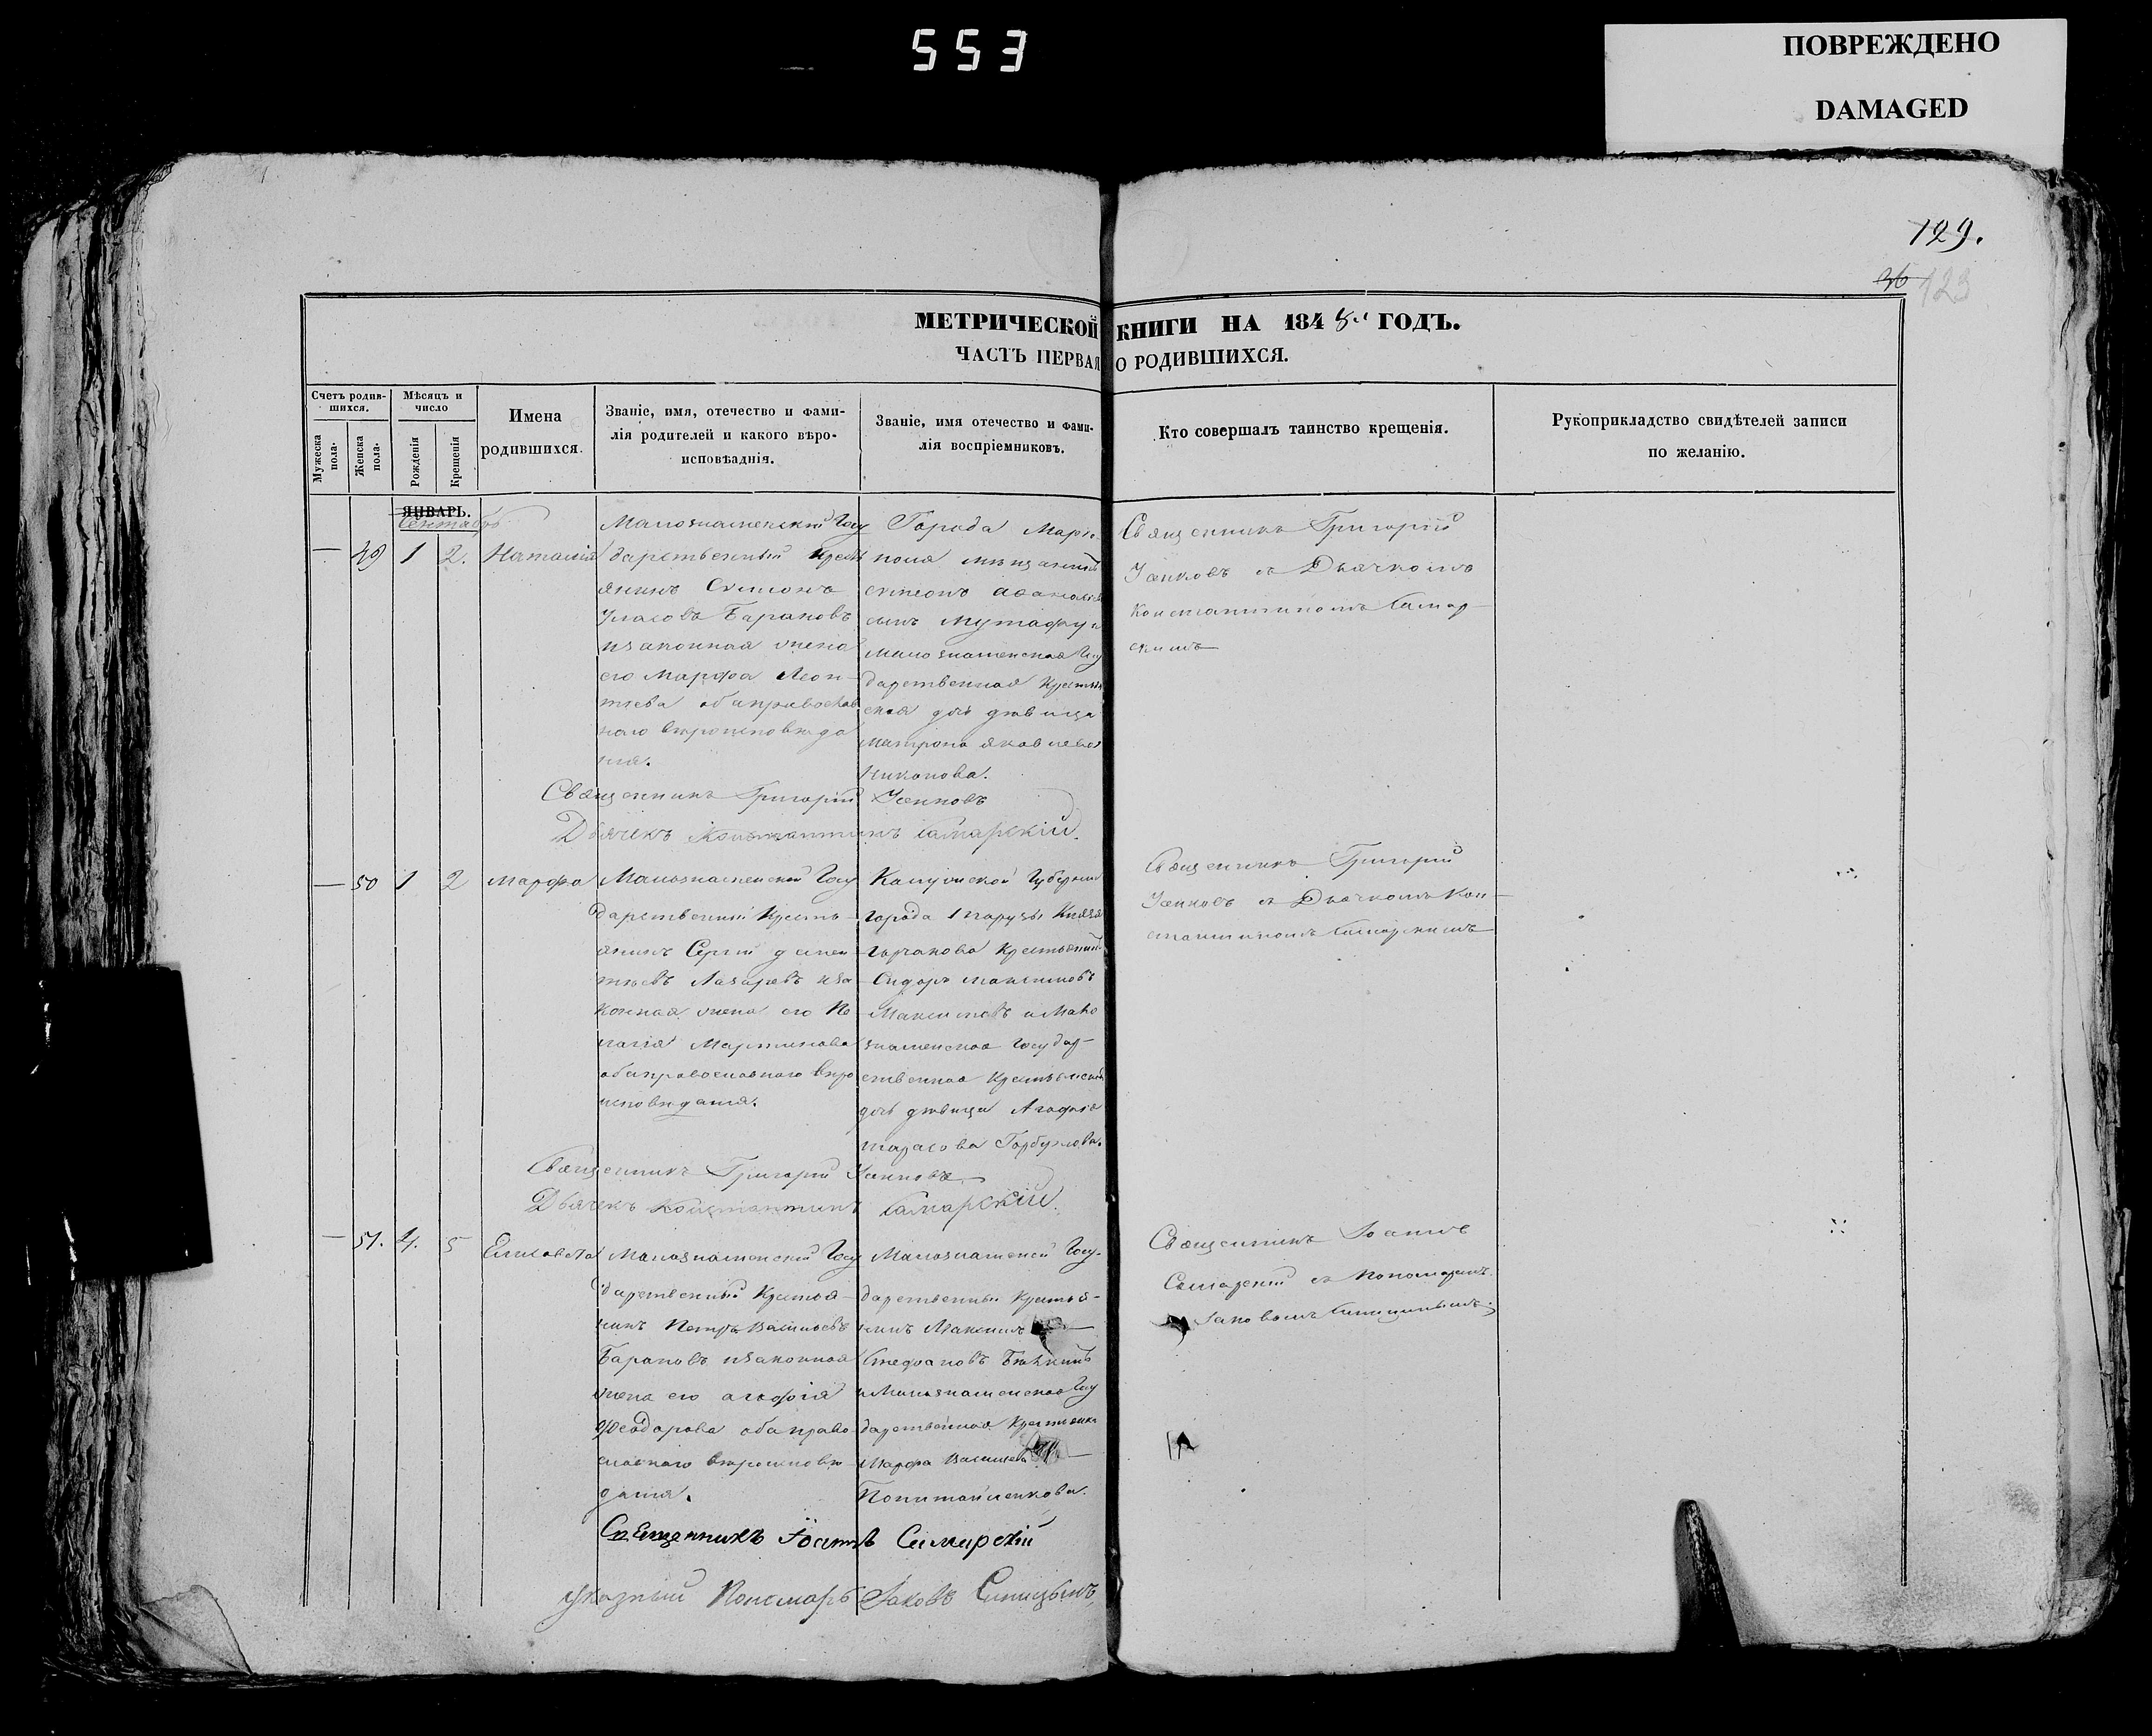 553
ПОВРЕЖДЕНО
DAMAGED
129.
36 123
МЕТРИЧЕСКОЙ КНИГИ НА 1848й ГОДЪ.
ЧАСТЬ ПЕРВАЯ О РОДИВШИХСЯ.
Счетъ родив-
шихся.
Мужеска
пола.
Женска
пола.
Мѣсяцъ и
число
Рожденія
Крещенія
Имена
родившихся.
Званіе, имя, отечество и фами-
лія родителей и какого вѣро-
исповѣаднія.
Званіе, имя отечество и фами-
лія воспріемниковъ.
Кто совершалъ таинство крещенія.
Рукоприкладство свидѣтелей записи
по желанію.
ЯНВАРЬ.
Сентябрь
— 49 1 2. Наталія
Малознаменскій Госу
дарственный Крест
янинъ Симионъ
Уласовъ Барановъ
изаконная жена
его Марфа Леон-
тіева оба православ
наго вѣроисповѣда
нія.
Города Маріу-
поля мѣщанинъ
Симеонъ
сынъ
Малознаменская Госу
дарственная Крестьян
ская дочь дѣвица
Матрона Яковлева
Никонова.
Священникъ Григорій
Усиковъ съ Дьячкомъ
Константиномъ Самар-
скимъ
Священникъ Григорій Усиковъ
Дьячекъ Константинъ Самарскій.
— 50 1 2 Марфа
Малознаменскій Госу
дарственный Кресть-
янинъ Сергій
Лазаревъ иза
конная жена его Пе
лагія Мартинова
оба православнаго вѣро
исповѣданія.
Калужской Губерніи
города Тарузы Князя
Горчакова Крестьянинъ
Сидоръ Максимовъ
Максимовъ и Мало
знаменская Государ-
ственная Крестьянская
дочь дѣвица Агафія
Тарасова Горбунова.
Священникъ Григорій
Усиковъ съ Дьячкомъ Кон-
стантиномъ Самарскимъ
Священникъ Григорій Усиковъ
Дьячекъ Константинъ Самарскій.
— 51. 4. 5 Елисавета
Малознаменскій Госу
дарственный Крестья-
нинъ Петръ Васильевъ
Барановъ изаконная
жена его Агафія
Феодорова оба право
славнаго вѣроисповѣ
данія.
Малознаменскій Госу-
дарственный Крестья-
нинъ Максимъ
Стефановъ
и Малознаменская Госу
дарственная Крестьянка
Марфа Васильева
Священникъ Іоаннъ
Самарскій съ Пономаремъ
Іаковомъ Синицынымъ.
Священникъ Іоаннъ Самарскій
указный Пономарь Іаковъ Синицынъ